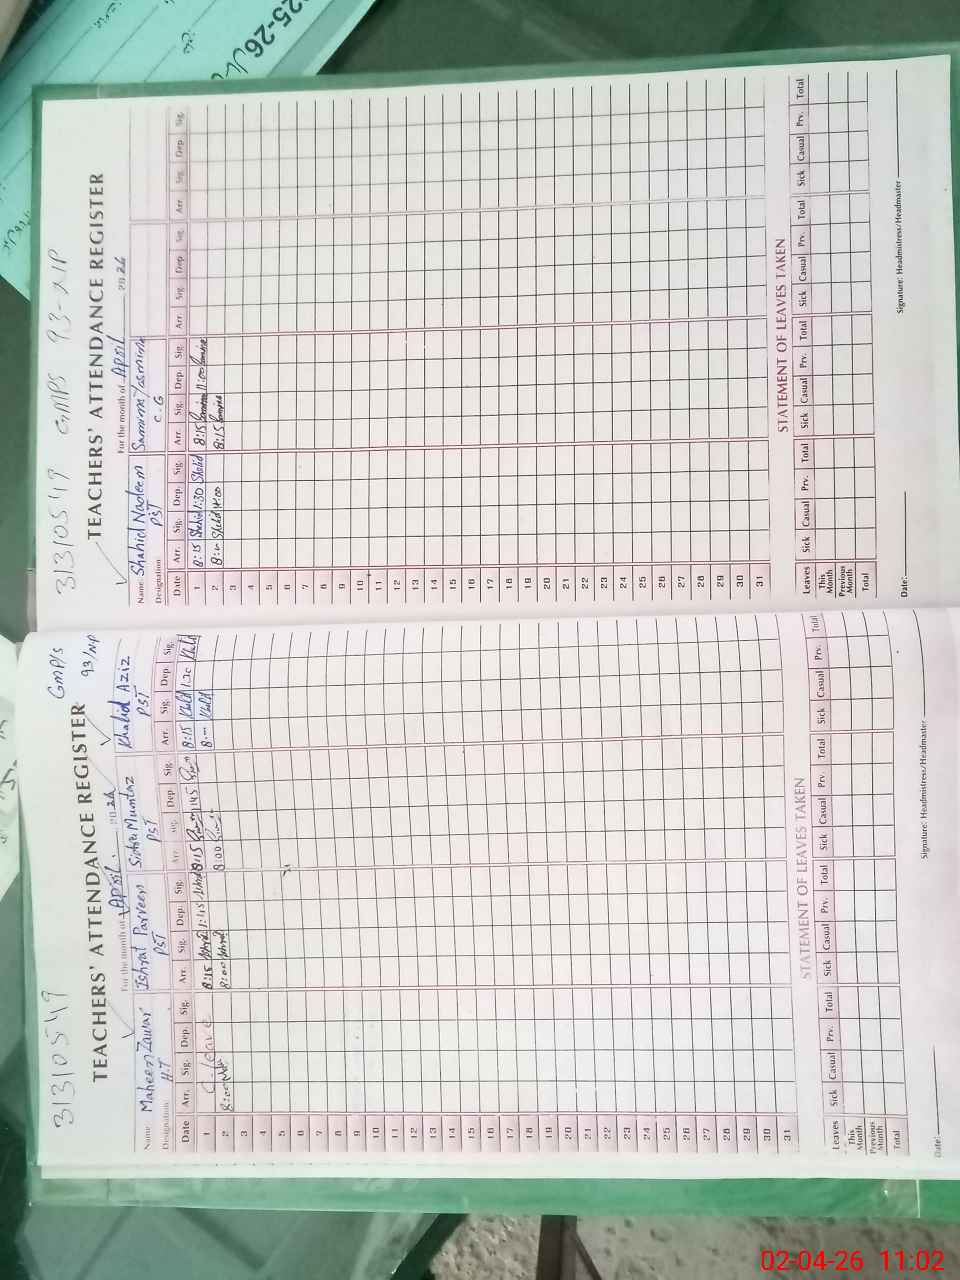 31310549 GMP/S
93/NP
TEACHERS' ATTENDANCE REGISTER
For the month of April 2026
Name Maheen Zawar Ishrat Parveen Sidra Mumtaz Khalid Aziz
Designation H.T PST PST PST
Date Arr. Sig. Dep. Sig. Arr. Sig. Dep. Sig. Arr. Sig. Dep. Sig. Arr. Sig. Dep. Sig.
1 C-leave 8:15 1:15 8:15 1:45 8:15 Khalid Khalid
2 8:00 8:00 8:00 8:— Khalid
3
4
5
6
7
8
9
10
11
12
13
14
15
16
17
18
19
20
21
22
23
24
25
26
27
28
29
30
31
STATEMENT OF LEAVES TAKEN
Leaves Sick Casual Prv. Total Sick Casual Prv. Total Sick Casual Prv. Total Sick Casual Prv. Total
This Month
Previous Month
Total
Date: Signature: Headmistress/Headmaster
31310549 GMPS 93-NP
TEACHERS' ATTENDANCE REGISTER
For the month of April 2026
Name Shahid Nadeem Samina Yasmine
Designation PST C.G
Date Arr. Sig. Dep. Sig. Arr. Sig. Dep. Sig. Arr. Sig. Dep Sig. Arr. Sig. Dep Sig.
1 8:15 Shahid 1:30 Shahid 8:15 Samina 11:00 Samina
2 8:— Shahid 14:00 8:15 Samina
3
4
5
6
7
8
9
10
11
12
13
14
15
16
17
18
19
20
21
22
23
24
25
26
27
28
29
30
31
STATEMENT OF LEAVES TAKEN
Leaves Sick Casual Prv. Total Sick Casual Prv. Total Sick Casual Prv. Total Sick Casual Prv. Total
This Month
Previous Month
Total
Date: Signature: Headmistress/Headmaster
25-26
02-04-26 11:02